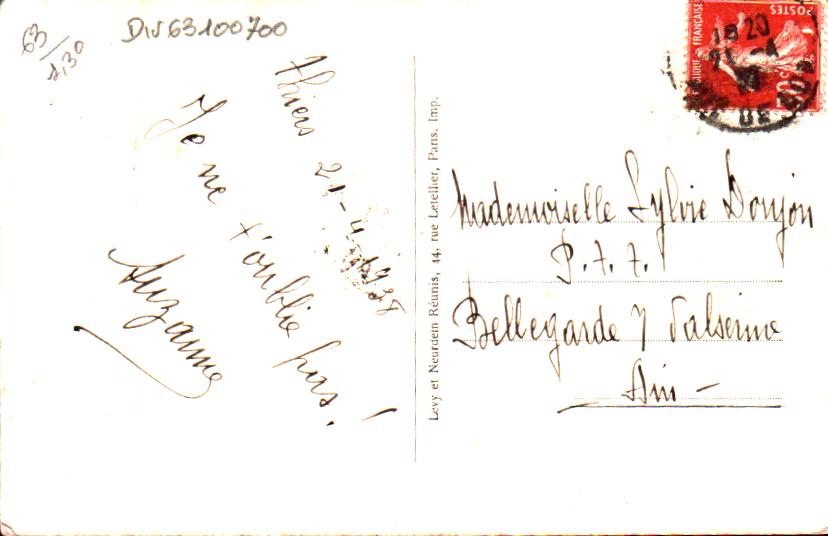 63/
1,30
Div63100700
Thiers 21-4-1938
Je ne t'oublie pas!
Suzanne
Levy et Neurdein Réunis, 44, rue Letellier, Paris. Imp.
POSTES
FRANÇAISE
18 20
21 -4
Mademoiselle Sylvie Donjon
P.T.T.
Bellegarde s/ Valserine
Ain -